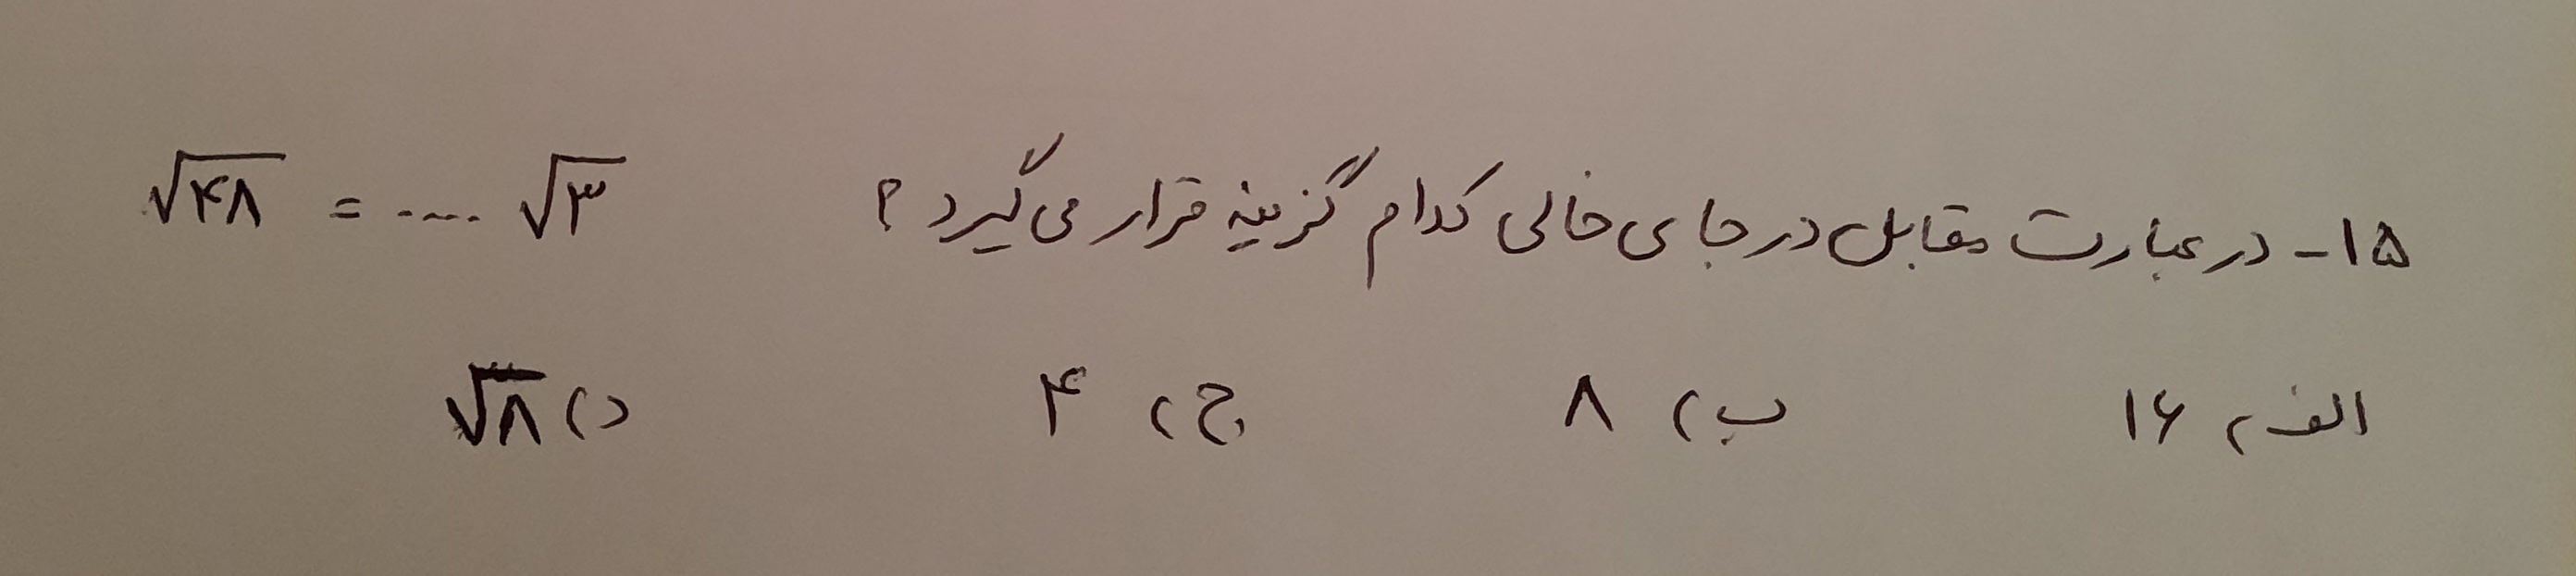 ۱۵- در عبارت مقابل در جای خالی کدام گزینه قرار می‌گیرد؟ √۴۸ = .... √۳
الف) ۱۶ ب) ۸ ج) ۴ د) √۸